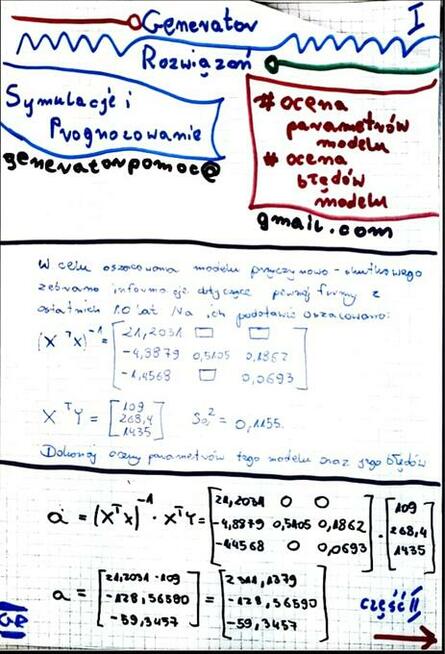 Generator
I
Rozwiązań
Symulacje i
Prognozowanie
generatorpomoc@
# ocena
parametrów
modelu
# ocena
błędów
modelu
gmail.com
W celu oszacowania modelu przyczynowo-skutkowego
zebrano informacje dotyczące pewnej firmy z
ostatnich 10 lat. Na ich podstawie oszacowano:
(X^T X)^-1 = [21,2031 □ □
-4,3879 0,5105 0,1862
-1,4568 □ 0,0693]
X^T Y = [109
268,4
1435] Se^2 = 0,1155.
Dokonaj oceny parametrów tego modelu oraz jego błędów
a = (X^T X)^-1 · X^T Y = [21,2031 0 0
-4,8879 0,5105 0,1862
-1,4568 0 0,0693] · [109
268,4
1435]
a = [21,2031 · 109
-128,56590
-59,3457] = [2311,1379
-128,56590
-59,3457]
część II
GR